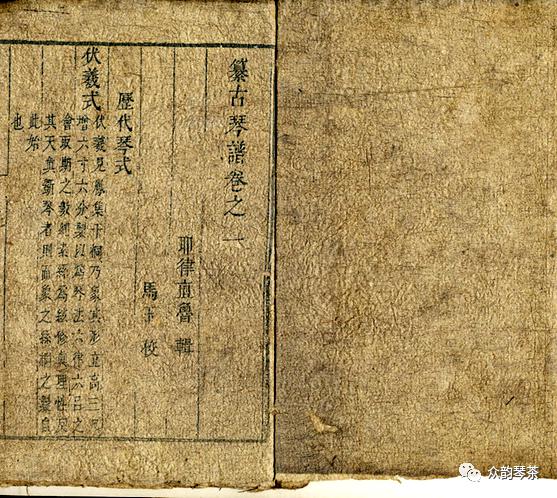 纂古琴譜卷之一
耶律直魯 輯
馬 校
歷代琴式
伏羲式
伏羲見鳳集于桐乃象其形立高三尺
增六寸六分製以爲琴法六律六呂之
會取期之數桑絲爲絃修真理性反
其天真斵琴者則而象之絲桐之製自
此始
也
众韵琴茶